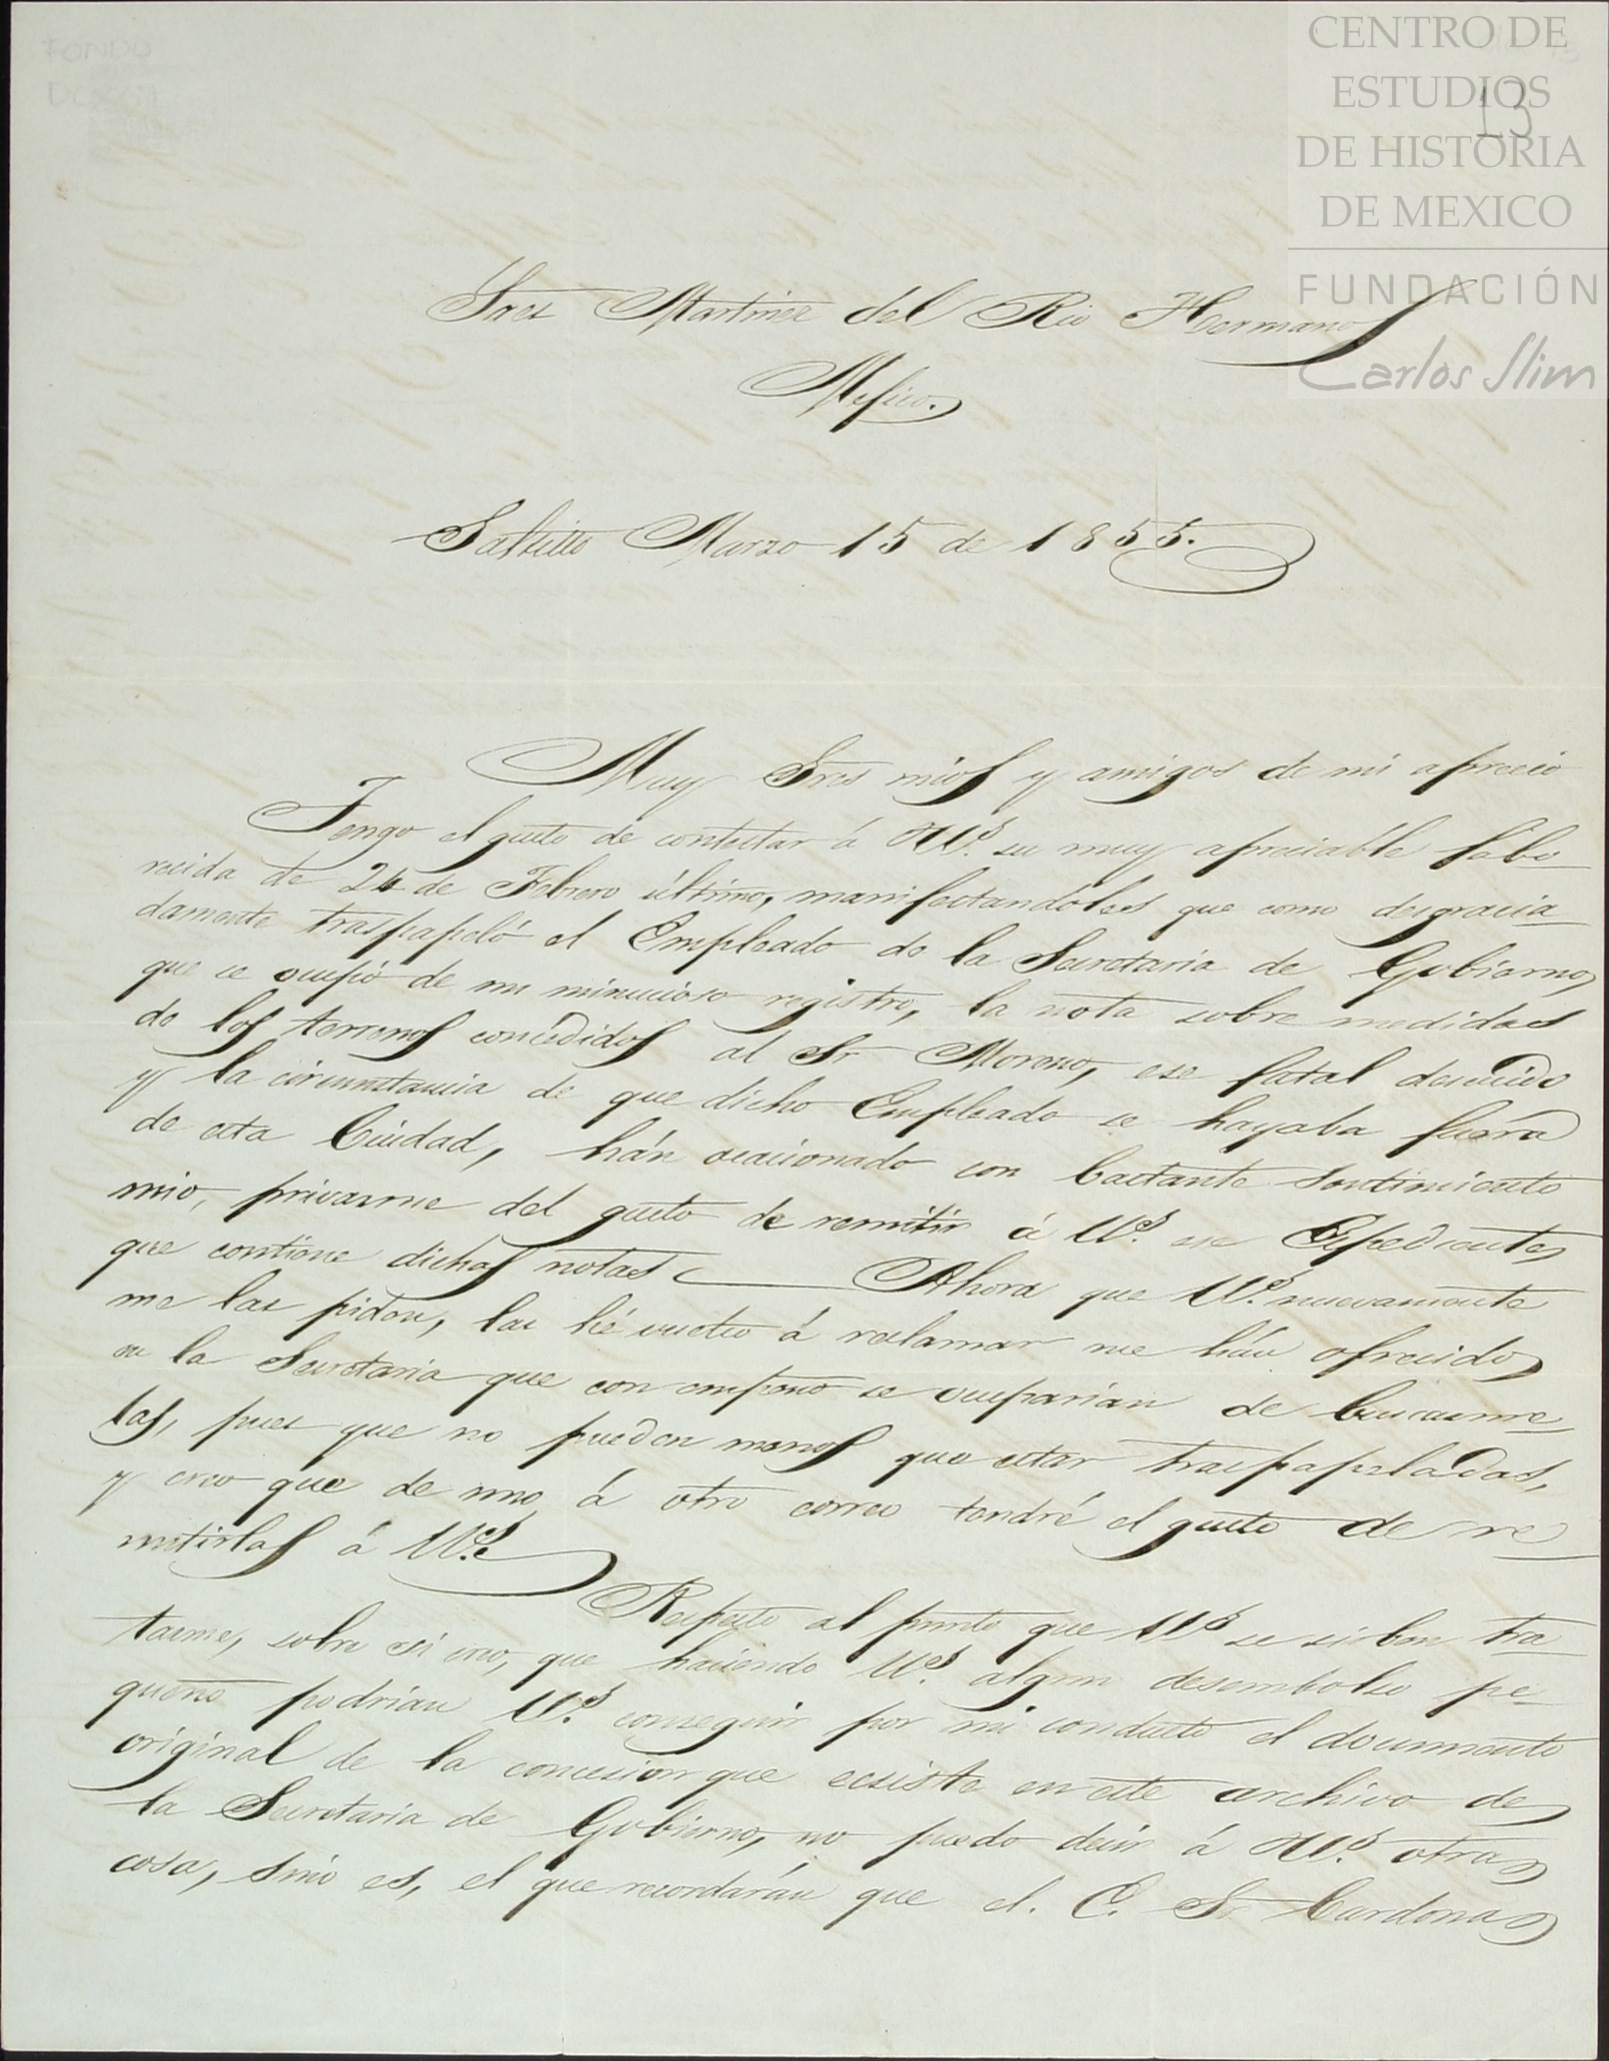 FONDO
CENTRO DE
ESTUDIOS
DE HISTORIA
DE MEXICO
FUNDACIÓN
Carlos Slim
13
Sres Martinez del Rio Hermanos
Mejico.
Saltillo Marzo 15 de 1855.
Muy Sres mios y amigos de mi aprecio
Tengo el gusto de contestar á VVs. su muy apreciable fabo
recida de 24 de Febrero último, manifestandoles que como desgracia
damente traspapeló el Empleado de la Secretaria de Gobierno
que se ocupó de un minucioso registro, la nota sobre medidas
de los terrenos concedidos al Sr Moreno, ese fatal descuido
y la circunstancia de que dicho Empleado se hayaba fuera
de esta Ciudad, hán ocacionado con bastante sentimiento
mio, privarme del gusto de remitir á VVs. ese Espediente
que contiene dichas notas Ahora que VVs. nuevamente
me las piden, las hé vuelto á reclamar me hán ofrecido
en la Secretaria que con empeño se ocuparian de buscarme
las, pues que no pueden menos que estar traspapeladas,
y creo que de uno á otro correo tendré el gusto de re
mitirlas á VVs.
Respecto al punto que VVs se sirben tra
tarme, sobre si creo, que haciendo VVs. algun desembolso pe
queño podrian VVs. conseguir por mi conducto el documento
original de la concesion que ecsiste en este archivo de
la Secretaria de Gobierno, no puedo decir á VVs. otra
cosa, sinó es, el que recordarán que el. E. Sr Cardona